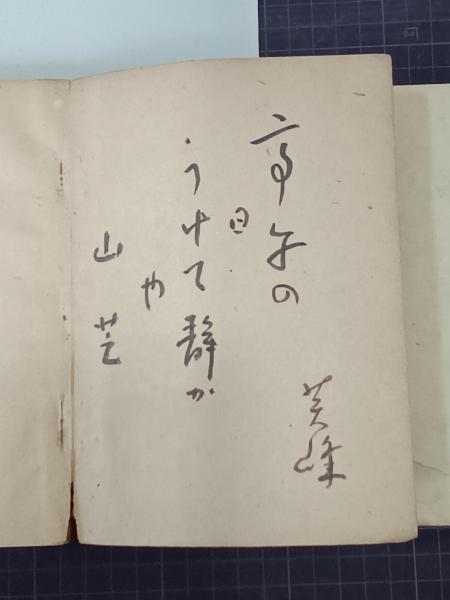 亭午の
日
うけて静か
や
山芒
英峰